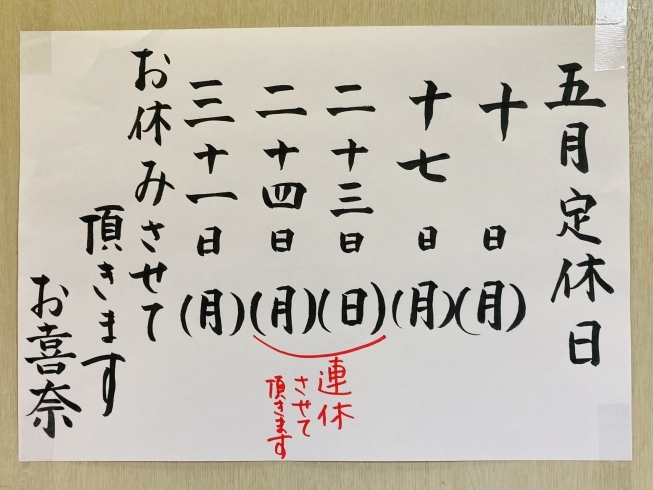 五月定休日
十日(月)
十七日(月)
二十三日(日)
二十四日(月)
三十一日(月)
連休
させて
頂きます
お休みさせて
頂きます
お喜奈